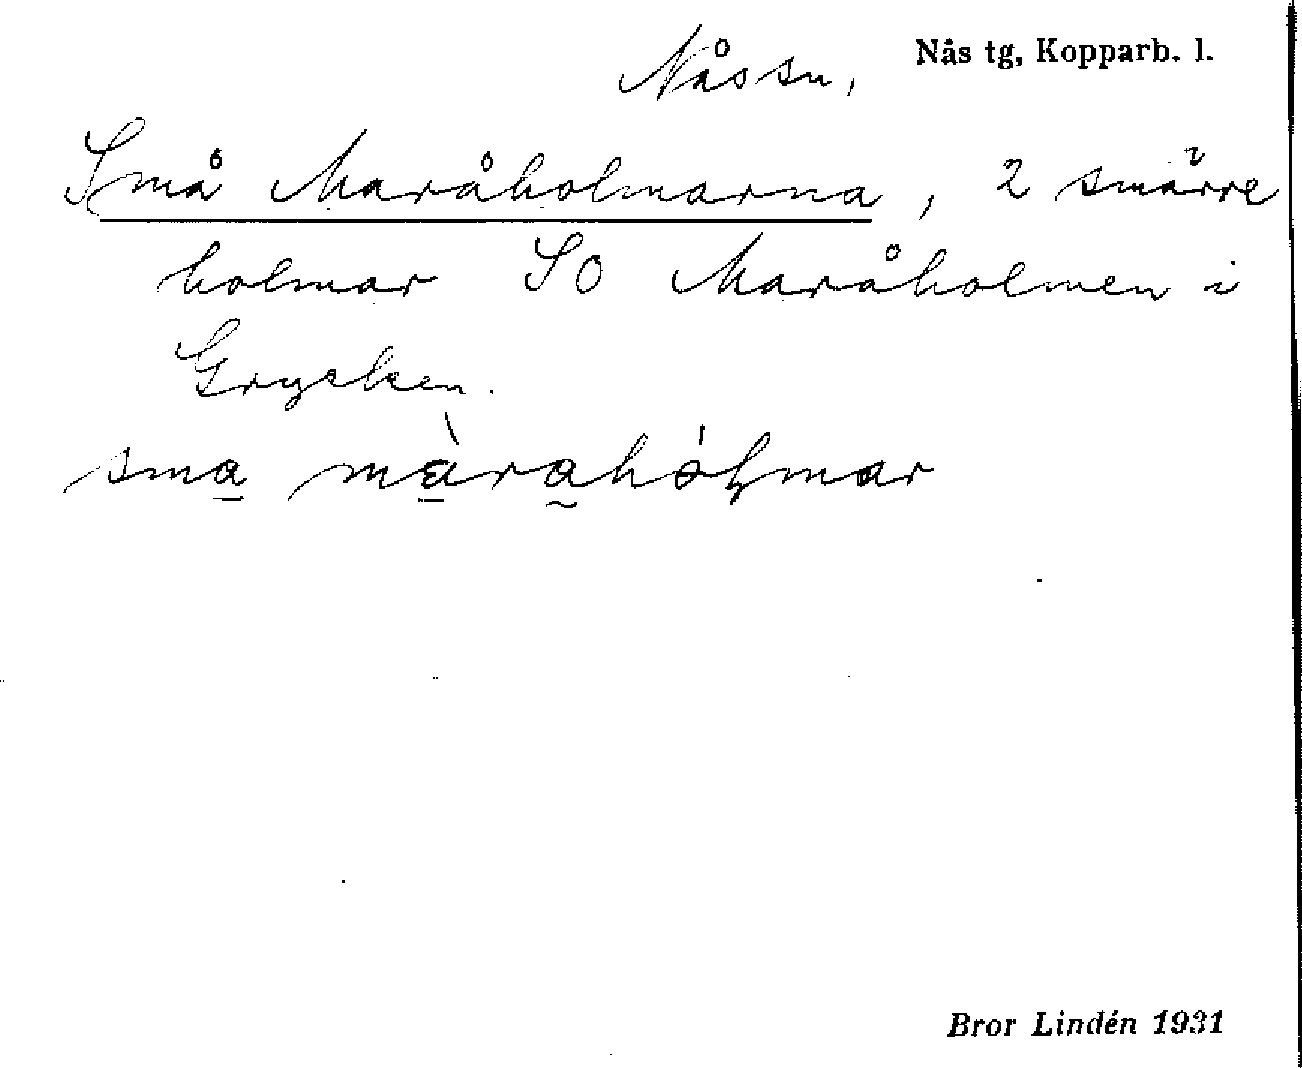 Nås sn, Nås tg, Kopparb. l.
Små Maråholmarna, 2 smärre
holmar SO Maråholmen i
Grycken.
Bror Lindén 1931